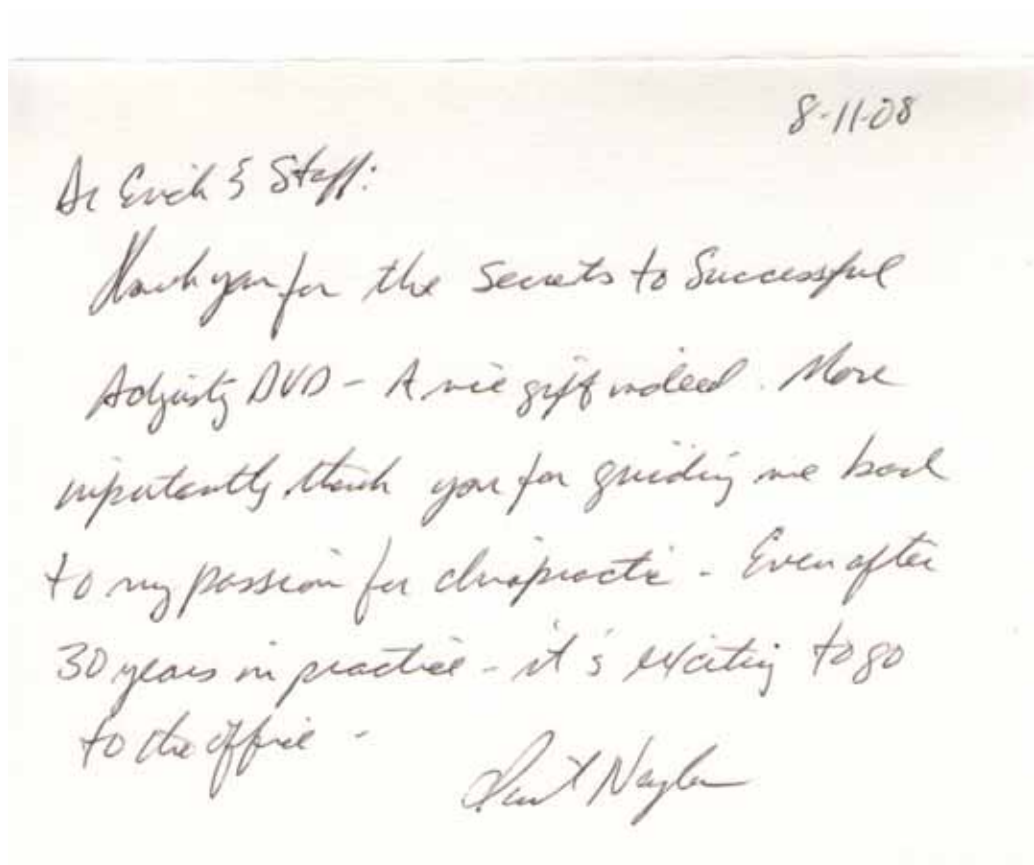 8-11-08
Dr Erich & Staff:
Thank you for the Secrets to Successful
Adjusting DVD - A nice gift indeed. More
importantly thank you for guiding me back
to my passion for chiropractic - Even after
30 years in practice - it's exciting to go
to the office -
Naylor